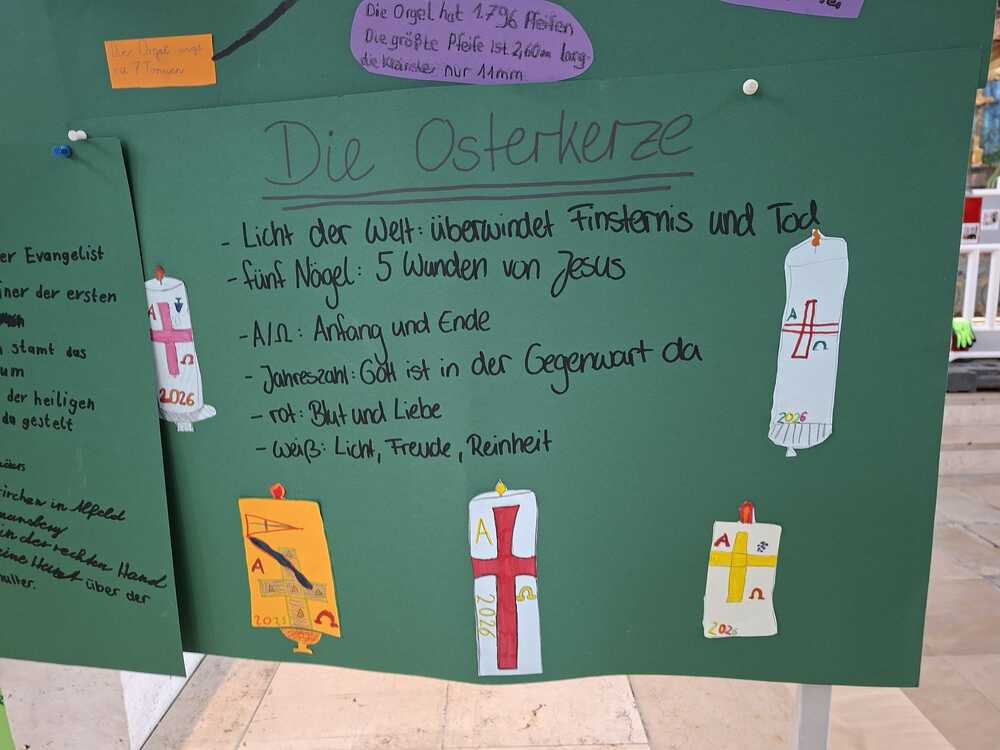 Die Orgel hat 1.796 Pfeifen
Die größte Pfeife ist 2,60m lang
die kleinste nur 11mm
ca 7 Tonnen
Die Osterkerze
- Licht der Welt: überwindet Finsternis und Tod
- fünf Nägel: 5 Wunden von Jesus
- A/Ω: Anfang und Ende
- Jahreszahl: Gott ist in der Gegenwart da
- rot: Blut und Liebe
- weiß: Licht, Freude, Reinheit
er Evangelist
iner der ersten
stamt das
um
der heiligen
da gestelt
irchen in Alfeld
an der rechten Hand
über der
A
Ω
2026
A
Ω
2026
A
Ω
2025
A
Ω
2026
A
Ω
2026